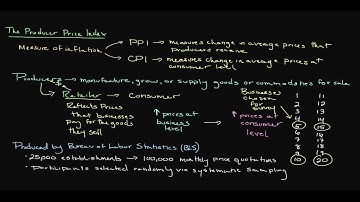 The Producer Price Index
Measure of inflation
PPI → measures change in average prices that
producers receive
CPI → measures change in average prices at
consumer level
Producers → manufacture, grow, or supply goods or commodities for sale
Retailer → Consumer
Reflects Prices
that businesses
pay for the goods
they sell
↑ prices at
business
level
↑ prices at
consumer
level
Businesses
chosen
for
survey
1 11
2 12
3 13
4 14
5 15
6 16
7 17
8 18
9 19
10 20
Produced by Bureau of Labor Statistics (BLS)
• 25,000 establishments → 100,000 monthly price quotations
• Participants selected randomly via systematic sampling